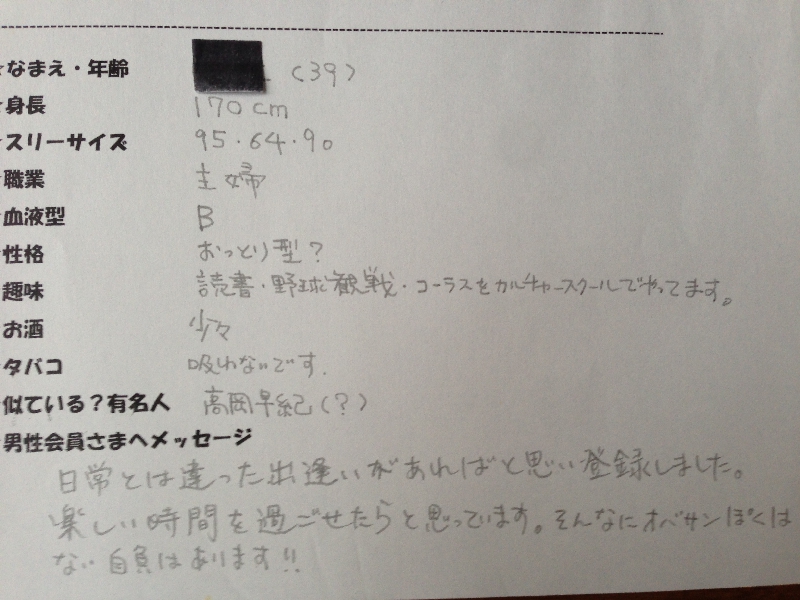 ☆なまえ・年齢 (39)
☆身長 170cm
☆スリーサイズ 95・64・90
☆職業 主婦
☆血液型 B
☆性格 おっとり型?
☆趣味 読書・野球観戦・コーラスをカルチャースクールでやってます。
☆お酒 少々
☆タバコ 吸わないです.
☆似ている?有名人 高岡早紀(?)
☆男性会員さまへメッセージ
日常とは違った出逢いがあればと思い登録しました。
楽しい時間を過ごせたらと思っています。そんなにオバサンぽくは
ない自負はあります!!